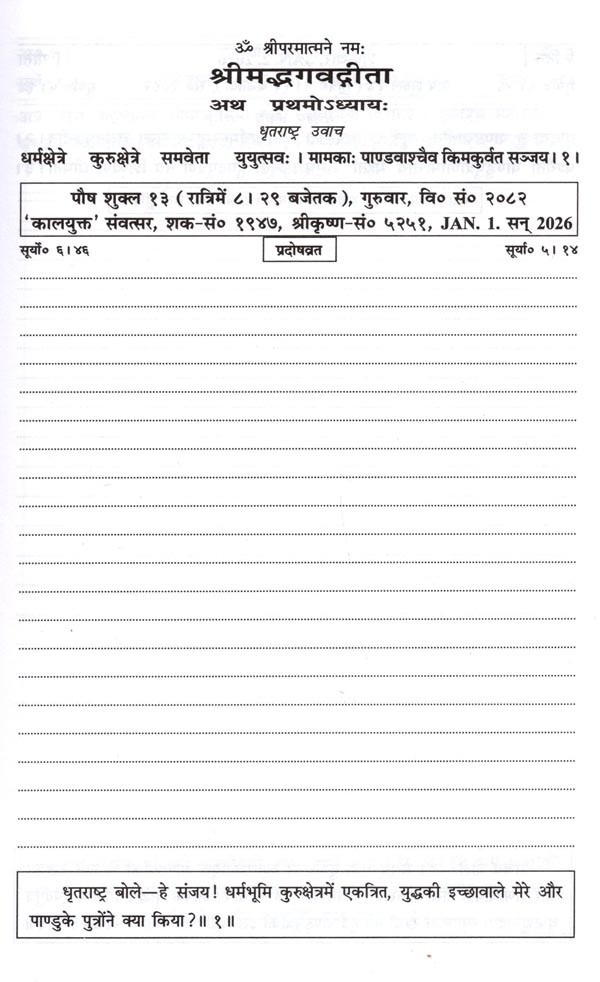 ॐ श्रीपरमात्मने नमः
श्रीमद्भगवद्गीता
अथ प्रथमोऽध्यायः
धृतराष्ट्र उवाच
धर्मक्षेत्रे कुरुक्षेत्रे समवेता युयुत्सवः । मामकाः पाण्डवाश्चैव किमकुर्वत सञ्जय। १।
पौष शुक्ल १३ ( रात्रिमें ८। २९ बजेतक ), गुरुवार, वि० सं० २०८२
‘कालयुक्त’ संवत्सर, शक-सं० १९४७, श्रीकृष्ण-सं० ५२५१, JAN. 1. सन् 2026
सूर्यो० ६। ४६ प्रदोषव्रत सूर्या० ५। १४
धृतराष्ट्र बोले—हे संजय! धर्मभूमि कुरुक्षेत्रमें एकत्रित, युद्धकी इच्छावाले मेरे और
पाण्डुके पुत्रोंने क्या किया?॥ १॥